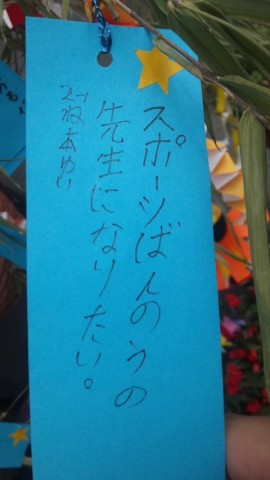 スポーツばんのうの
先生になりたい。
坂本めい